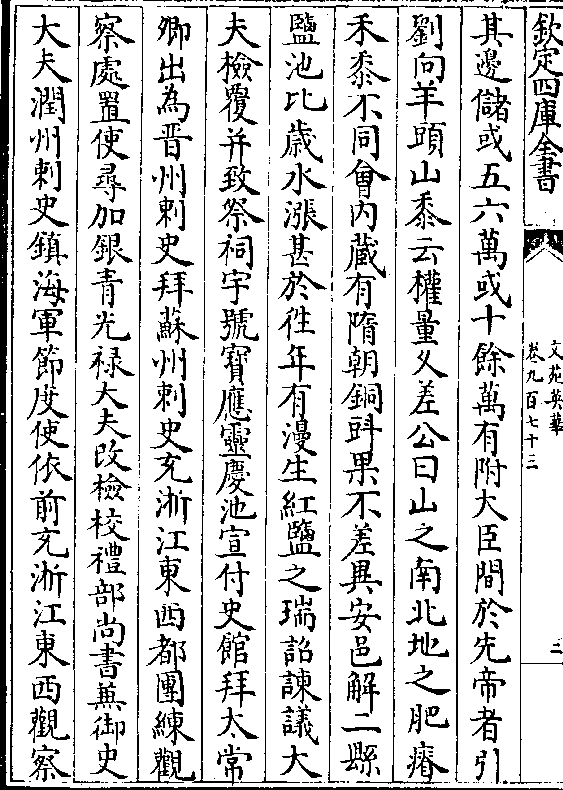 欽定四庫全書
文苑英華
卷九百七十三
二
其邊儲或五六萬或十餘萬有附大臣間於先帝者引
劉向羊頭山黍云權量乆差公曰山之南北地之肥瘠
禾黍不同㑹内蔵有隋朝銅㪷果不差異安邑解二縣
鹽池比歳水漲甚於徃年有漫生紅鹽之瑞詔諫議大
夫檢覆并致祭祠宇號寳應靈慶池宣付史館拜太常
卿出為晉州刺史拜蘇州刺史充淅江東西都團練觀
察處置使尋加銀青光禄大夫改檢校禮部尚書兼御史
大夫潤州刺史鎮海軍節度使依前充淅江東西觀察